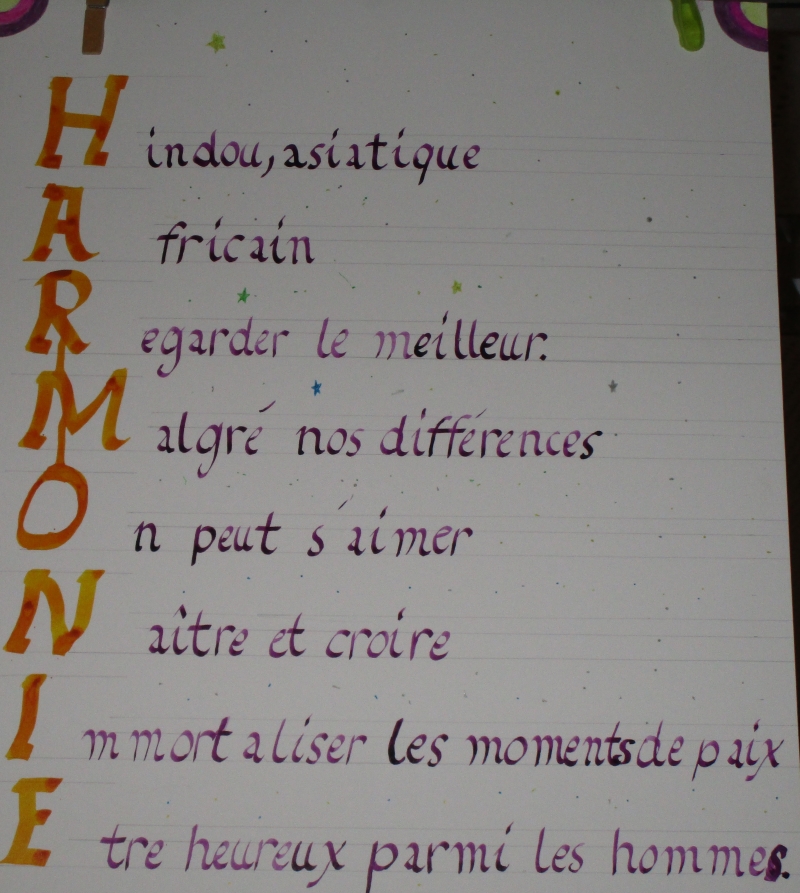 Hindou, asiatique
Africain
Regarder le meilleur.
Malgré nos différences
On peut s'aimer
Naître et croire
Immortaliser les moments de paix
Etre heureux parmi les hommes.